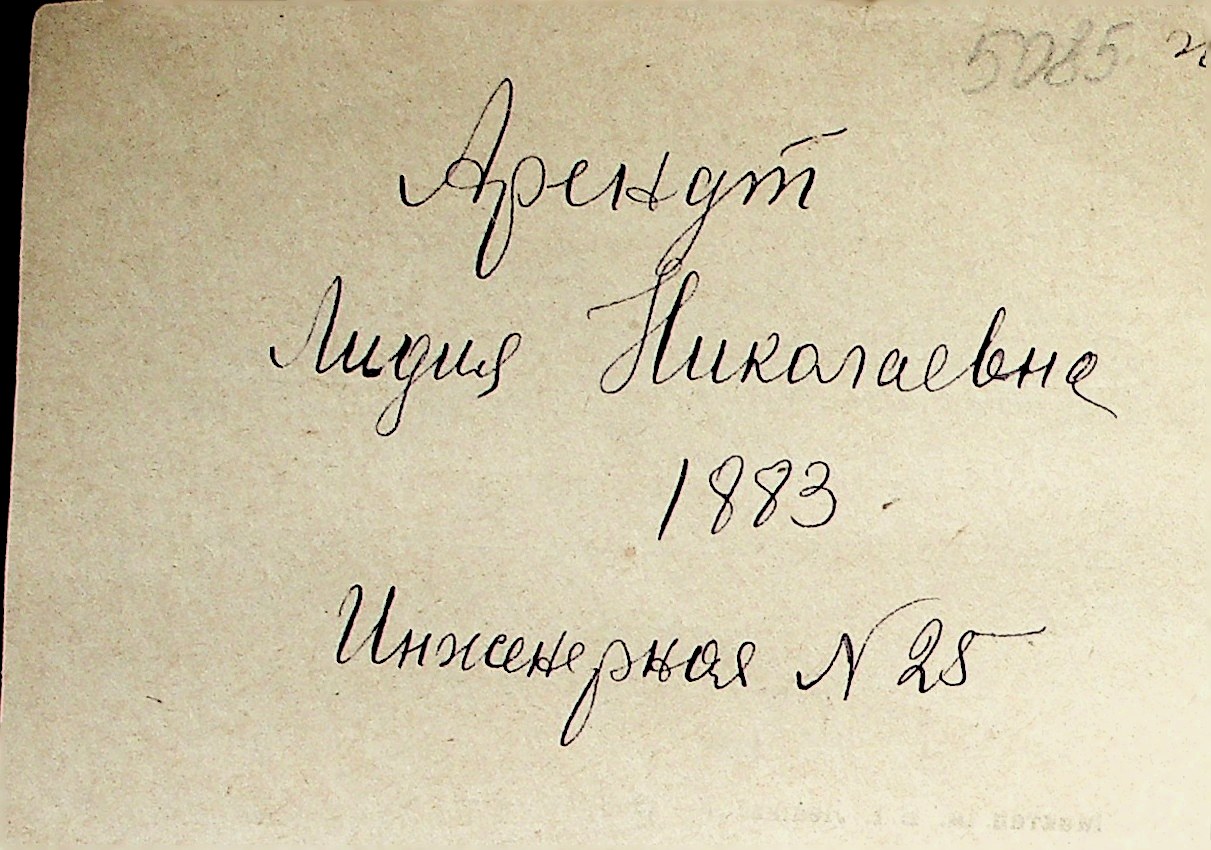 5085
Арендт
Лидия Николаевна
1883
Инженерная N 25